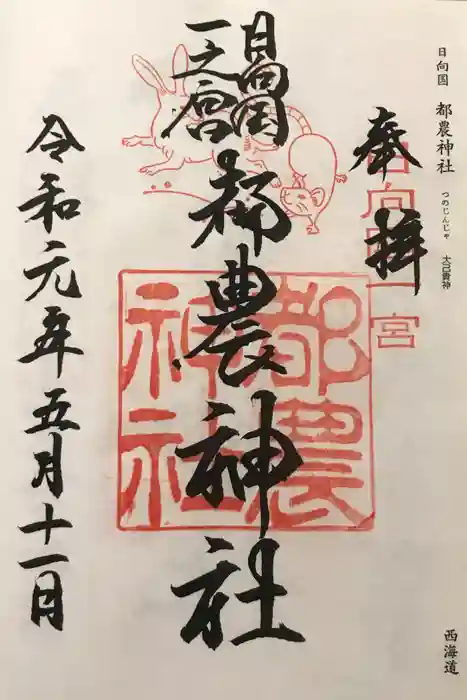 日向国 都農神社
つのじんじゃ 大己貴神
西海道
奉拝
日向国一宮
日向国
一之宮
都農神社
都農神社
令和元年五月十一日